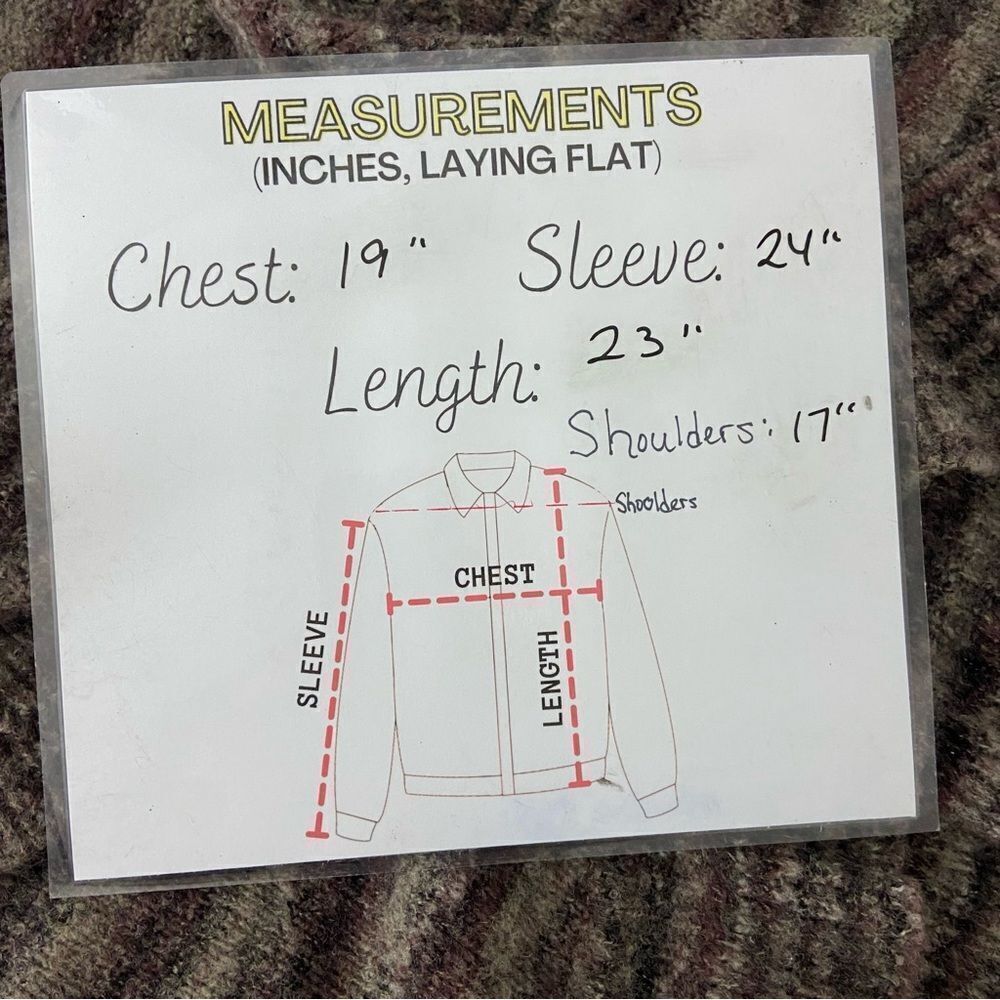 MEASUREMENTS
(INCHES, LAYING FLAT)
Chest: 19" Sleeve: 24"
Length: 23"
Shoulders: 17"
Shoolders
CHEST
SLEEVE
LENGTH